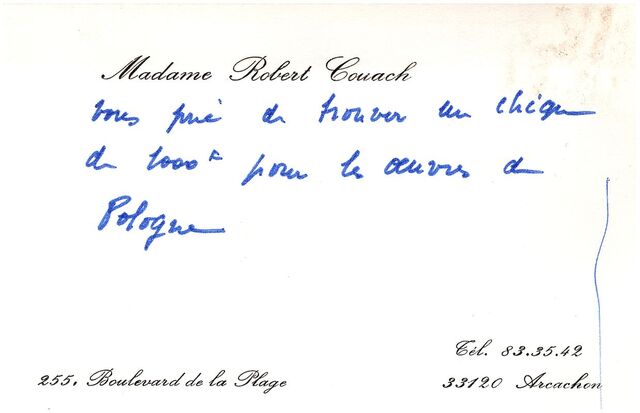 Madame Robert Couach
vous prie de trouver un chèque
de 1000F pour les œuvres de
Pologne
Tél. 83.35.42
255, Boulevard de la Plage
33120 Arcachon